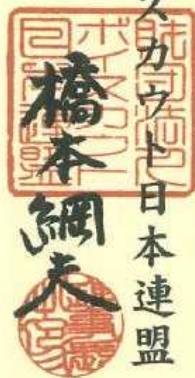 スカウト日本連盟
橋本綱夫